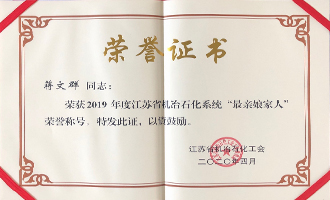 荣誉证书
蒋文群 同志：
荣获2019年度江苏省机冶石化系统“最亲娘家人”
荣誉称号。特发此证，以资鼓励。
江苏省机冶石化工会
二〇二〇年四月